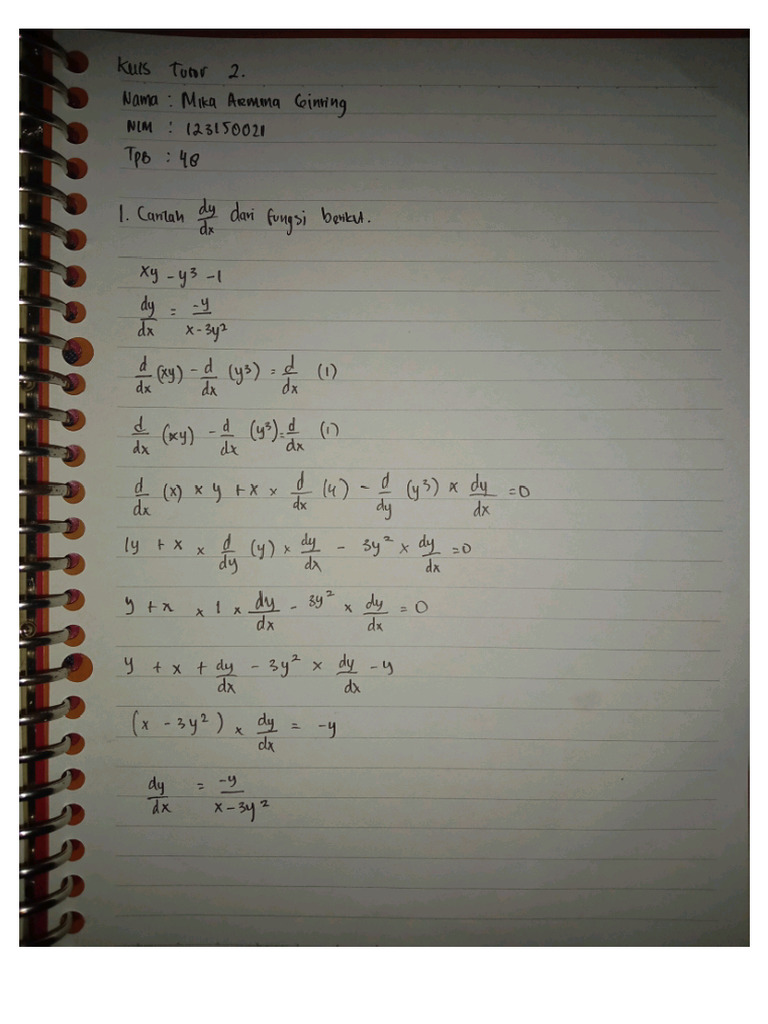 Kuis Tutor 2.
Nama : Mika Armena Ginting
NIM : 123150021
TPB : 48
1. Carilah dy/dx dari fungsi berikut.
xy - y³ - 1
dy/dx = -y/(x - 3y²)
d/dx (xy) - d/dx (y³) = d/dx (1)
d/dx (xy) - d/dx (y³) = d/dx (1)
d/dx (x) × y + x × d/dx (y) - d/dy (y³) × dy/dx = 0
1y + x × d/dy (y) × dy/dx - 3y² × dy/dx = 0
y + x × 1 × dy/dx - 3y² × dy/dx = 0
y + x + dy/dx - 3y² × dy/dx - y
(x - 3y²) × dy/dx = -y
dy/dx = -y/(x - 3y²)